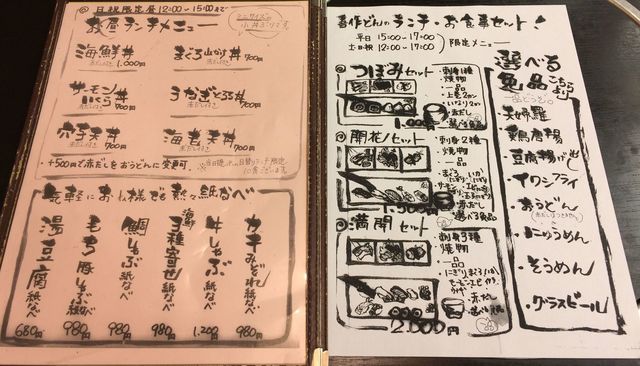 日祝限定昼12:00〜15:00まで
お昼ランチメニュー
海鮮丼
赤だし付き 1,000円
まぐろ山かけ丼 700円
赤だし付き
サーモンいくら丼
700円
うなぎとろろ丼
700円
穴子天丼
赤だし付き 700円
海老天丼
赤だし付き 700円
・+500円で赤だしをおうどんに変更可。
気軽にお一人様でも熱々紙なべ
カキみぞれ紙なべ 980円
牛しゃぶ紙なべ 1,200円
海鮮3種寄せ紙なべ 980円
鯛しゃぶ紙なべ 980円
もち豚しゃぶ紙なべ 980円
湯豆腐紙なべ 680円
喜作どんのランチ・お食事セット!
平日 15:00〜17:00
土日祝 12:00〜17:00
限定メニュー
つぼみセット
・刺身1種
・焼物
・一品
・上巻2コ
・いなり2コ
・赤だし
・選べる逸品
1,000円
開花ノセット
・刺身2種
・焼物
・一品
・赤だし
・選べる逸品
1,500円
満開セット
・刺身3種
・焼物
・一品
・赤だし
2,000円
選べる逸品こちらより
・茶碗蒸
・鶏唐揚
・豆腐揚げ出し
・イワシフライ
・おうどん
・にゅうめん
・そうめん
・グラスビール